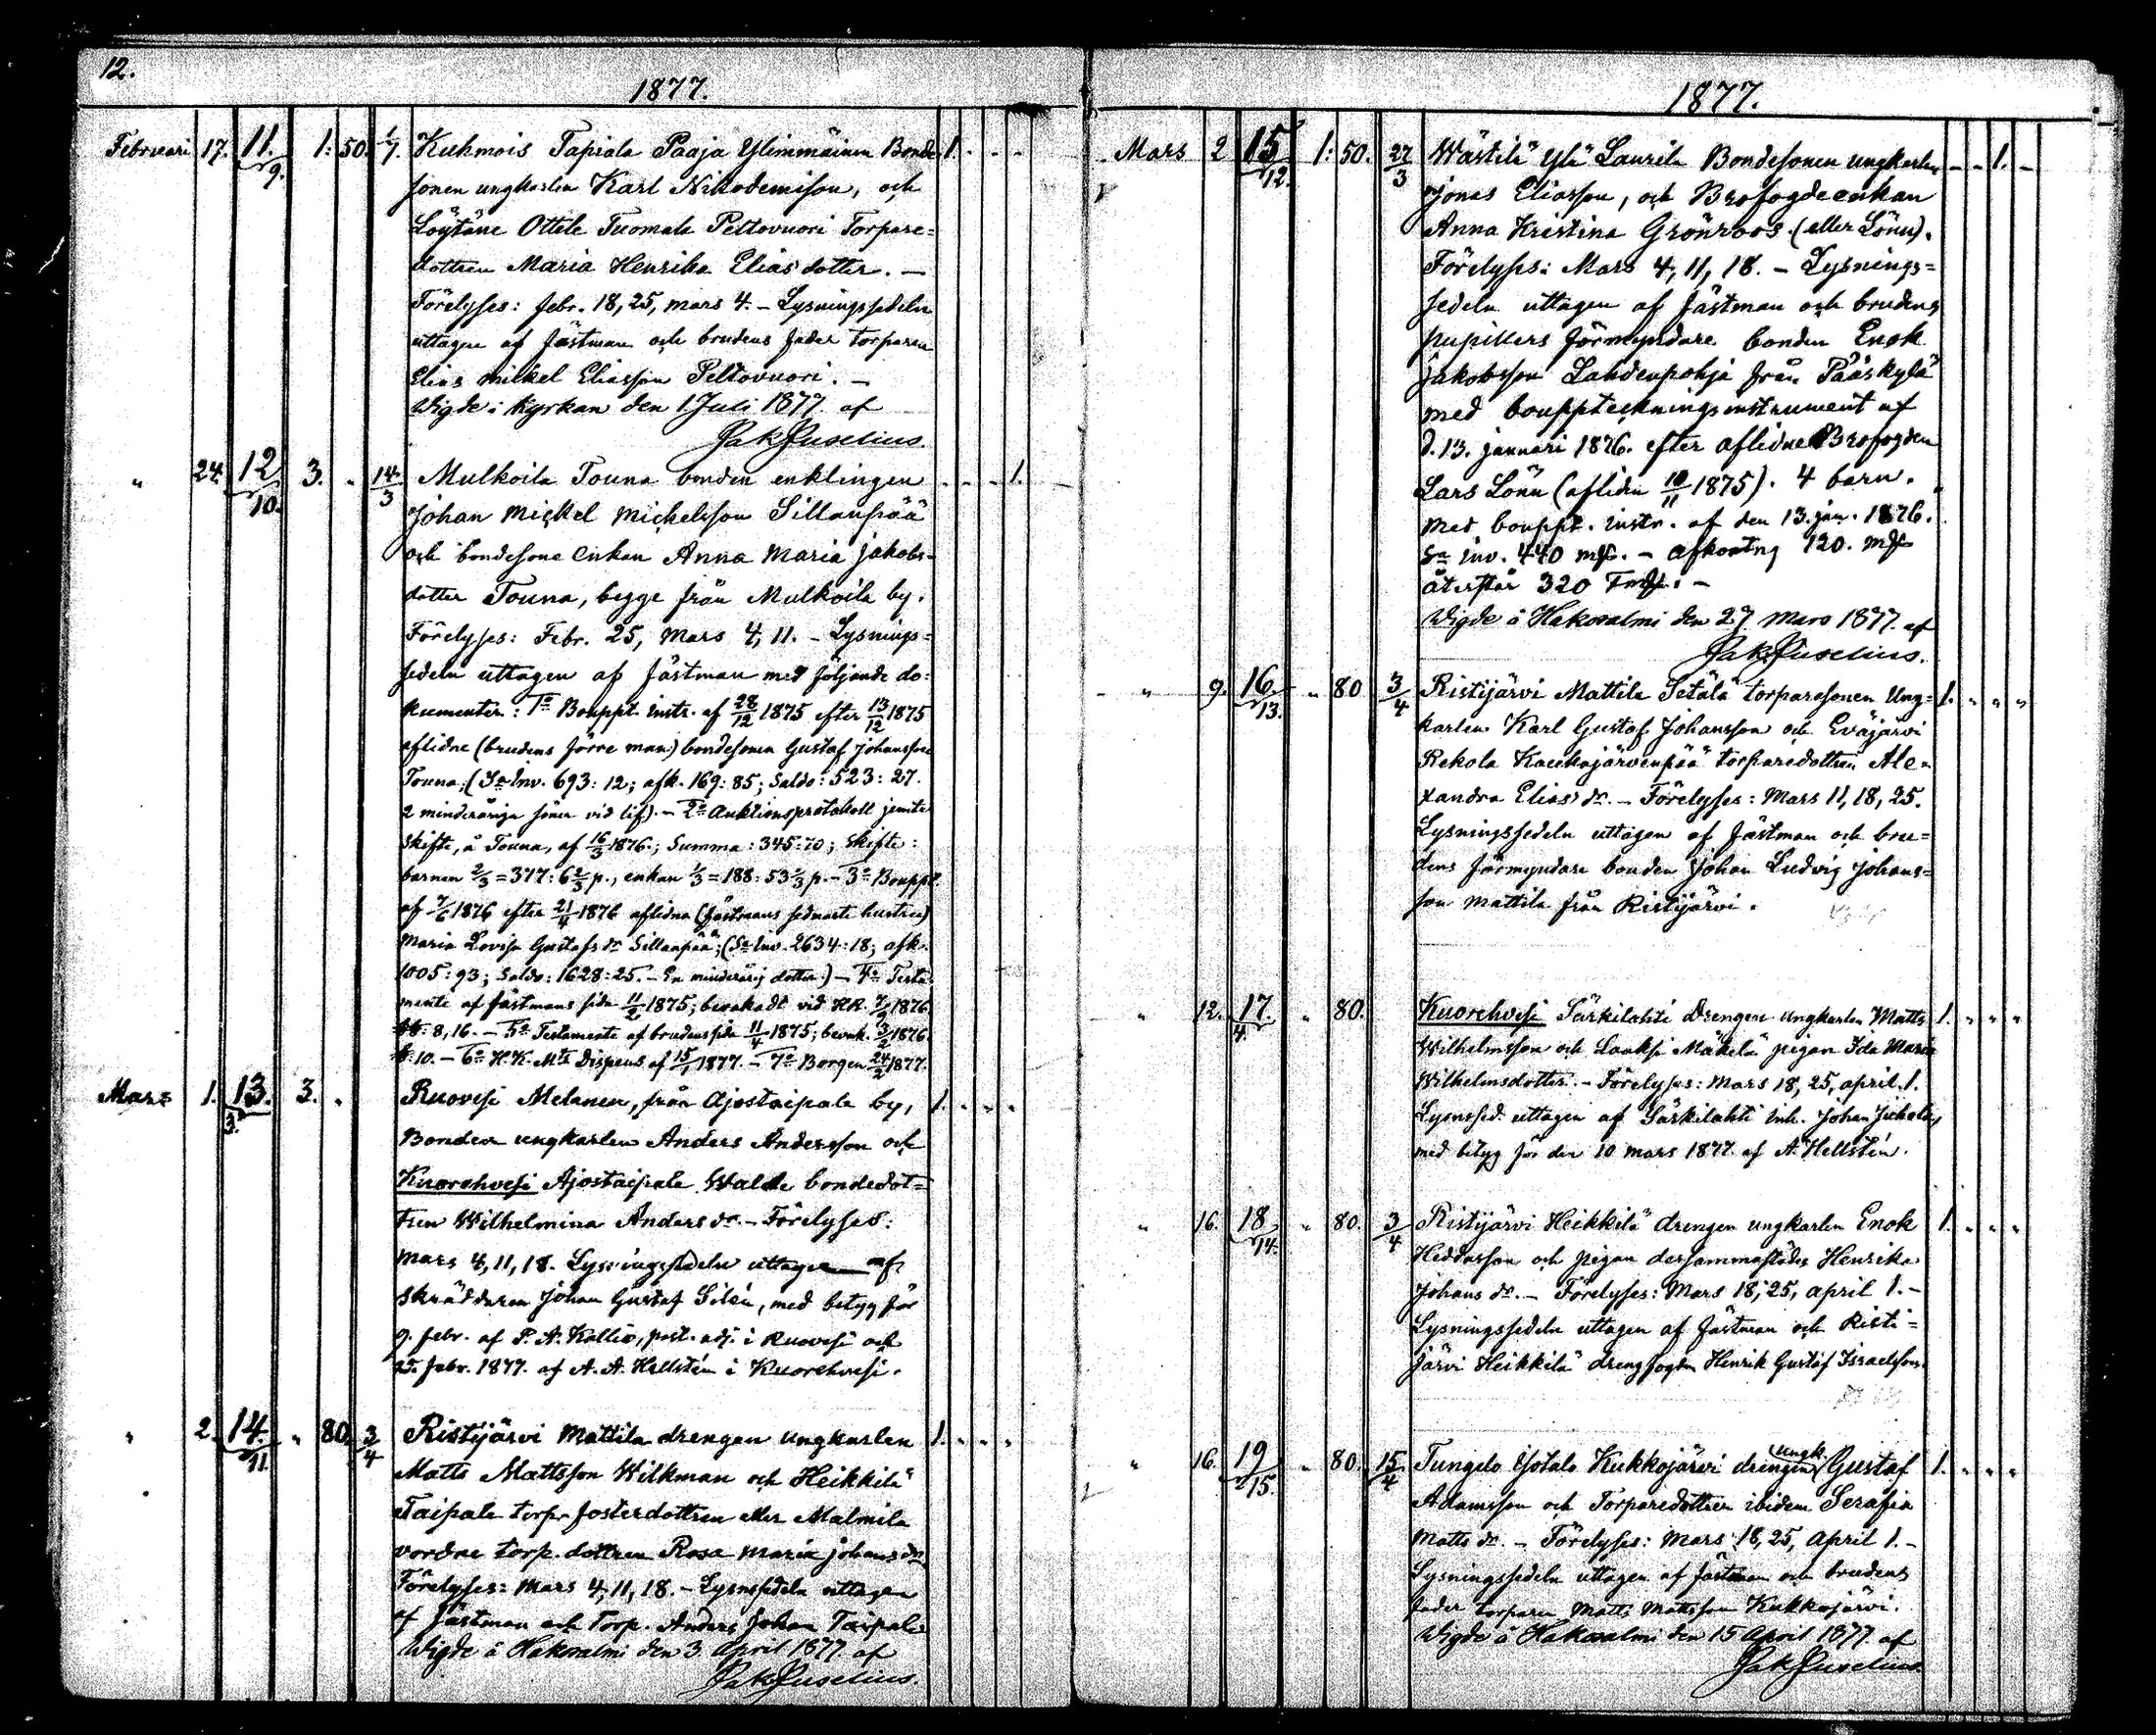 12.
1877.
Februari 17. 11./9. 1: 50. 1/7. Kuhmois Tapiala Paaja Ylimmäinen Bonde 1. - - -
sonen ungkarlen Karl Nikodemisson, och
Löytäne Ottele Tuomala Peltovuori Torpare=
dottren Maria Henrika Eliasdotter. —
Förelyses: febr. 18, 25, mars 4. - Lysningssedeln
uttagen af fästman och brudens fader torparen
Elias Mikel Eliasson Peltovuori. —
Wigde i Kyrkan den 1 Juli 1877 af
Jak Juselius.
" 24. 12/10. 3. " 14/3 Mulkoila Touna bonden enklingen - - - 1.
Johan Mickel Michelsson Sillanpää
och bondesone enkan Anna Maria Jakobs-
dotter Touna, begge från Mulkoila by.
Förelyses: Febr. 25, Mars 4, 11. - Lysnings=
sedeln uttagen af fästman med följande do-
kumenter: 1o Bouppt. instr. af 28/12 1875 efter 13/12 1875
aflidne (brudens förre man) bondesonen Gustaf Johansson
Touna; (Sa Inv. 693: 12; afk. 169: 85; Saldo: 523: 27.
2 minderåriga söner vid lif). - 2o Auktionsprotokoll jemte
skifte, å Touna, af 16/3 1876.; Summa: 345: 70; Skifte:
barnen 2/3 = 377: 6 2/3 p., enkan 1/3 = 188: 53 1/3 p. - 3o Bouppt.
af 7/6 1876 efter 21/4 1876 aflidna (fästmans sednaste hustru)
Maria Lovisa Gustafs dr Sillanpää; (Sa Inv. 2634: 18; afk.
1005: 93; Saldo: 1628: 25. - En minderårig dotter.) - 4o Testa
mente af fästmans sida 11/2 1875; bevakadt vid HR. 7/2 1876
§§. 8, 16. - 5o Testamente af brudens sida 11/4 1875; bevak. 3/2 1876
§. 10. - 6o H.K. Mts Dispens af 15/1 1877. - 7o Borgen 24/2 1877.
Mars 1. 13./3. 3. " Ruovesi Melanen, från Ajostaipale by, 1. - - -
Bonden ungkarlen Anders Andersson och
Kuorehvesi Ajostaipale Walde bondedot=
tren Wilhelmina Anders dr. - Förelyses:
Mars 4, 11, 18. Lysningssedeln uttagen af
skräddaren Johan Gustaf Silén, med betyg för
9. febr. af P. A. Kallio, past. adj. i Ruovesi och
25. febr. 1877. af A. A. Hellstén i Kuorehvesi.
" 2. 14./11. " 80. 3/4 Ristijärvi Mattila drengen ungkarlen 1. - - -
Matts Mattsson Wilkman och Heikkilä
Taipale torp. fosterdottren eller Malmila
vordne torp. dottren Rosa Maria Johans dr.
Förelyses: Mars 4, 11, 18. - Lysnsedeln uttagen
af fästman och torp. Anders Johan Taipale
Wigde å Hakosalmi den 3. April 1877. af
Jak Juselius.
1877.
Mars 2 15/12. 1: 50. 27/3 Wästilä Ylä Laurila Bondesonen ungkarlen - - 1. -
Jonas Eliasson, och Brofogdeenkan
Anna Kristina Grönroos. (eller Lönn).
Förelyses: Mars 4, 11, 18. - Lysnings=
sedeln uttagen af fästman och brudens
pupillers förmyndare bonden Enok
Jakobsson Lahdenpohja från Pääskylä
med bouppteckningsinstrument af
d. 13. januari 1876. efter aflidne Brofogden
Lars Lönn (afliden 10/11 1875). 4 barn.
Med bouppt. instr. af den 13. jan. 1876.
Sa Inv. 440 mf. - afkortng 120. mf
återstår 320 Fmf. -
Wigde å Hakosalmi den 27. Mars 1877. af
Jak. Juselius.
" 9. 16./13. " 80 3/4 Ristijärvi Mattila Setälä torparesonen Ung= 1. " " "
karlen Karl Gustaf Johansson och Eväjärvi
Rekola Kaukajärvenpää torparedottren Ale-
xandra Elias dr. - Förelyses: Mars 11, 18, 25.
Lysningssedeln uttagen af fästman och bru=
dens förmyndare bonden Johan Ludvig Johans=
son Mattila från Ristijärvi.
" 12. 17./4. " 80. Kuorehvesi Särkilahti Drengen ungkarlen Matts 1. " " "
Wilhelmsson och Laaksi Mäkelä pigan Ida Maria
Wilhelmsdotter. - Förelyses: Mars 18, 25, april. 1.
Lysnssed. uttagen af Särkilahti inh. Johan
med betyg för den 10 mars 1877 af A. A. Hellstén.
" 16. 18/14. " 80. 3/4 Ristijärvi Heikkilä drengen ungkarlen Enok 1. " " "
Heddasson och pigan dersammastädes Henrika
Johans dr. - Förelyses: Mars 18, 25, april 1. -
Lysningssedeln uttagen af fästman och Risti=
järvi Heikkilä drengfogden Henrik Gustaf Israelsson.
" 16. 19/15. " 80. 15/4 Tungelo Ojotalo Kukkojärvi drengen ungk. Gustaf 1. " " "
Adamsson och Torparedottren ibidem Serafia
Matts dr. - Förelyses: Mars 18, 25, April 1. -
Lysningssedeln uttagen af fästman och brudens
fader torparen Matts Mattsson Kukkojärvi.
Wigde å Hakosalmi den 15 April 1877. af
Jak Juselius.